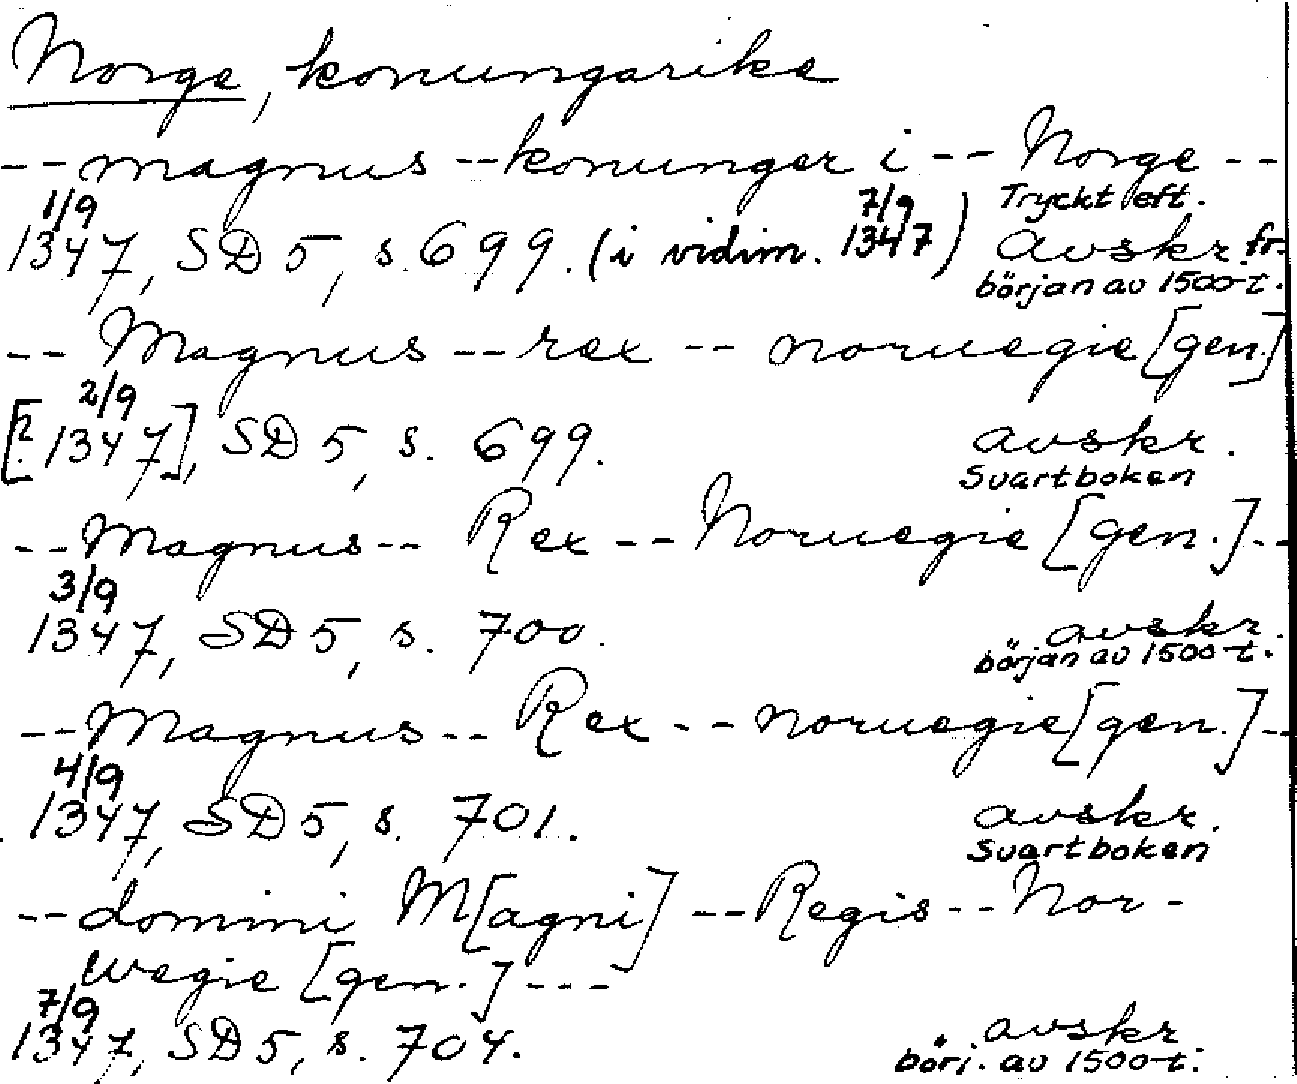 Norge, konungarike
--magnus --konunger i -- Norge --
1/9 7/9 Tryckt eft.
1347, SD 5, s. 699. (i vidim. 1347) avskr. fr.
början av 1500-t.
-- Magnus --rex -- noruegie [gen.]
2/9
[? 1347], SD 5, s. 699. avskr.
Svartboken
--Magnus-- Rex -- Noruegie [gen.]--
3/9
1347, SD 5, s. 700. avskr.
början av 1500-t.
--Magnus-- Rex -- noruegie [gen.]--
4/9
1347, SD 5, s. 701. avskr.
Svartboken
--domini M[agni] --Regis--Nor-
wegie [gen.]---
7/9
1347, SD 5, s. 704. avskr
börj. av 1500-t.